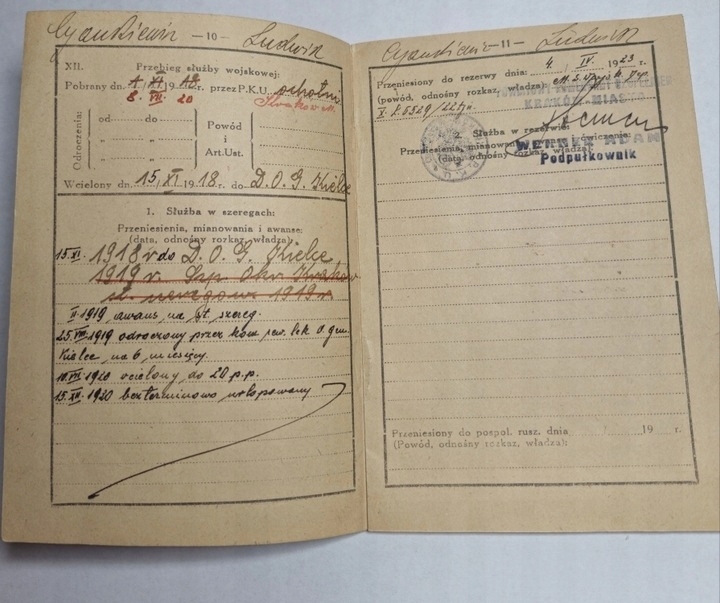 Cyankiewicz — 10 — Ludwik
XII. Przebieg służby wojskowej:
Pobrany dn. 1 XI 19 18 przez P.K.U. ochotnik
8 VII 20 Kraków M.
Odroczenia:
od do
Powód
i
Art.Ust.
Wcielony dn. 15/XI 1918. do D.O.G. Kielce
1. Służba w szeregach:
Przeniesienia, mianowania i awanse:
(data, odnośny rozkaz, władza):
15.XI. 1918 r do D.O.G. Kielce
1919 r. Szp. Okr. Kraków
st. szeregow. 1919 r
II 1919 awans na st szereg.
25.VIII.1919 odroczony przez kom. rew. lek O. gen
Kielce na 6 miesięcy.
VIII 1920 wcielony do 20 p.p.
15.XII.1920 bezterminowo urlopowany
Cyankiewicz — 11 — Ludwik
Przeniesiony do rezerwy dnia: 4 IV. 1923 r.
(powód, odnośny rozkaz, władza):
KRAKÓW MIASTO
2. Służba w rezerwie:
Przeniesienia, mianowania, ćwiczenia:
(data, odnośny rozkaz, władza):
WERNER ADAM
Podpułkownik
Przeniesiony do pospol. rusz. dnia 19 r.
(Powód, odnośny rozkaz, władza):